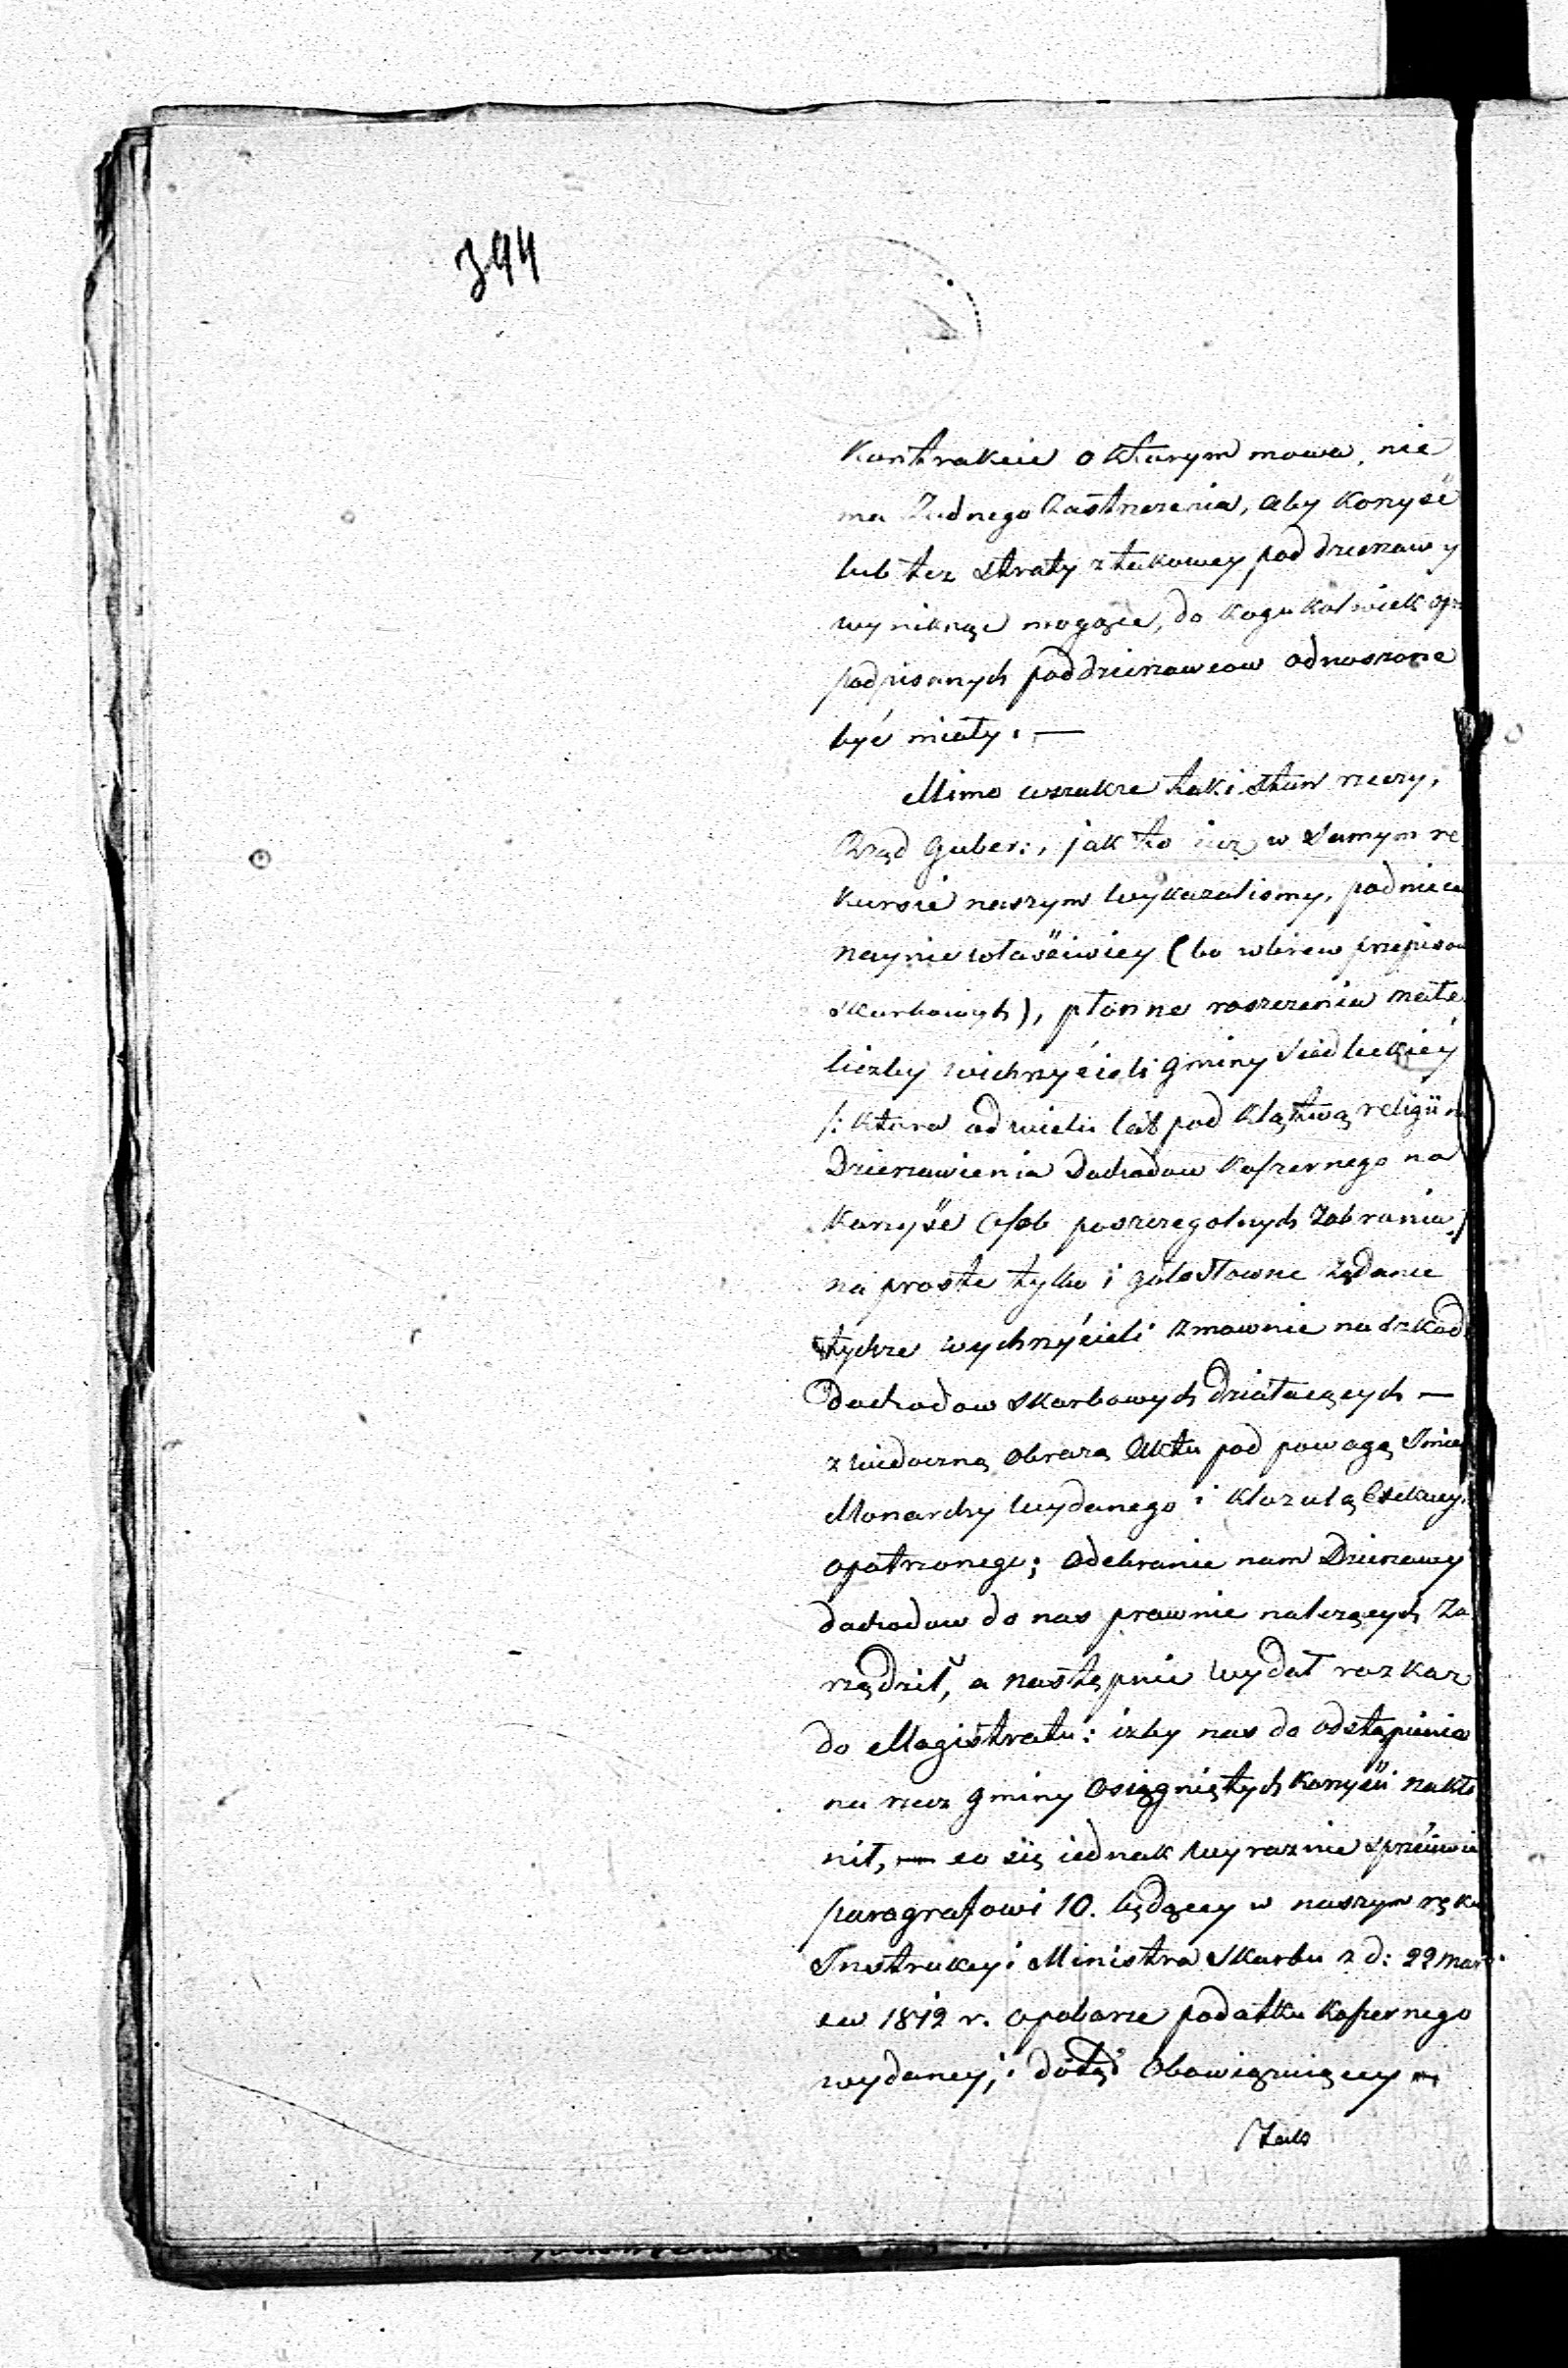 394
Kontrakcie o którym mowa, nie
ma żadnego zastrzeżenia, aby Korzyści
lub też straty z takowey pod dzierżawy
wyniknąć mogące, do kogo kolwiek opr
podpisanych poddzierżawcow odnoszone
być miały. —
Mimo wszakże taki stan rzeczy,
Rząd Guber:, jak to iuż w samym re
kursie naszym wykazalismy, podnieca
naynie właściwiey (bo wbrew przepisow
skarbowych), płonne roszczenia małe
liczby wichrzycieli gminy Siedleckiéy
/: która od wielu lat pod klątwą religiin
Dzierżawienia Dochodow koszernego na
korzyść osob poszczegolnych zabrania /
na proste tylko i gołosłowne żądanie
tychże wychrzycieli zmownie na szkod
dochodow skarbowych działaiących —
z widoczną obrazą Aktu pod powagą Imie
Monarchy wydanego i klozulą Exekucy
opatrzonego; odebranie nam Dzierżawy
dochodow do nas prawnie należących Za
rządził, a następnie wydał rozkaz
do Magistratu: iżby nas do odstąpienia
na rzecz gminy osiągniętych korzyści nakło
nił, — co się iednak wyraznie sprzéciwia
paragrafowi 10. będącey w naszym ręku
Instrukcyi Ministra Skarbu z d: 22 mar
ca 1812 r. o poborze podatku koszernego
wydaney, i dotąd obowiązuiącey —